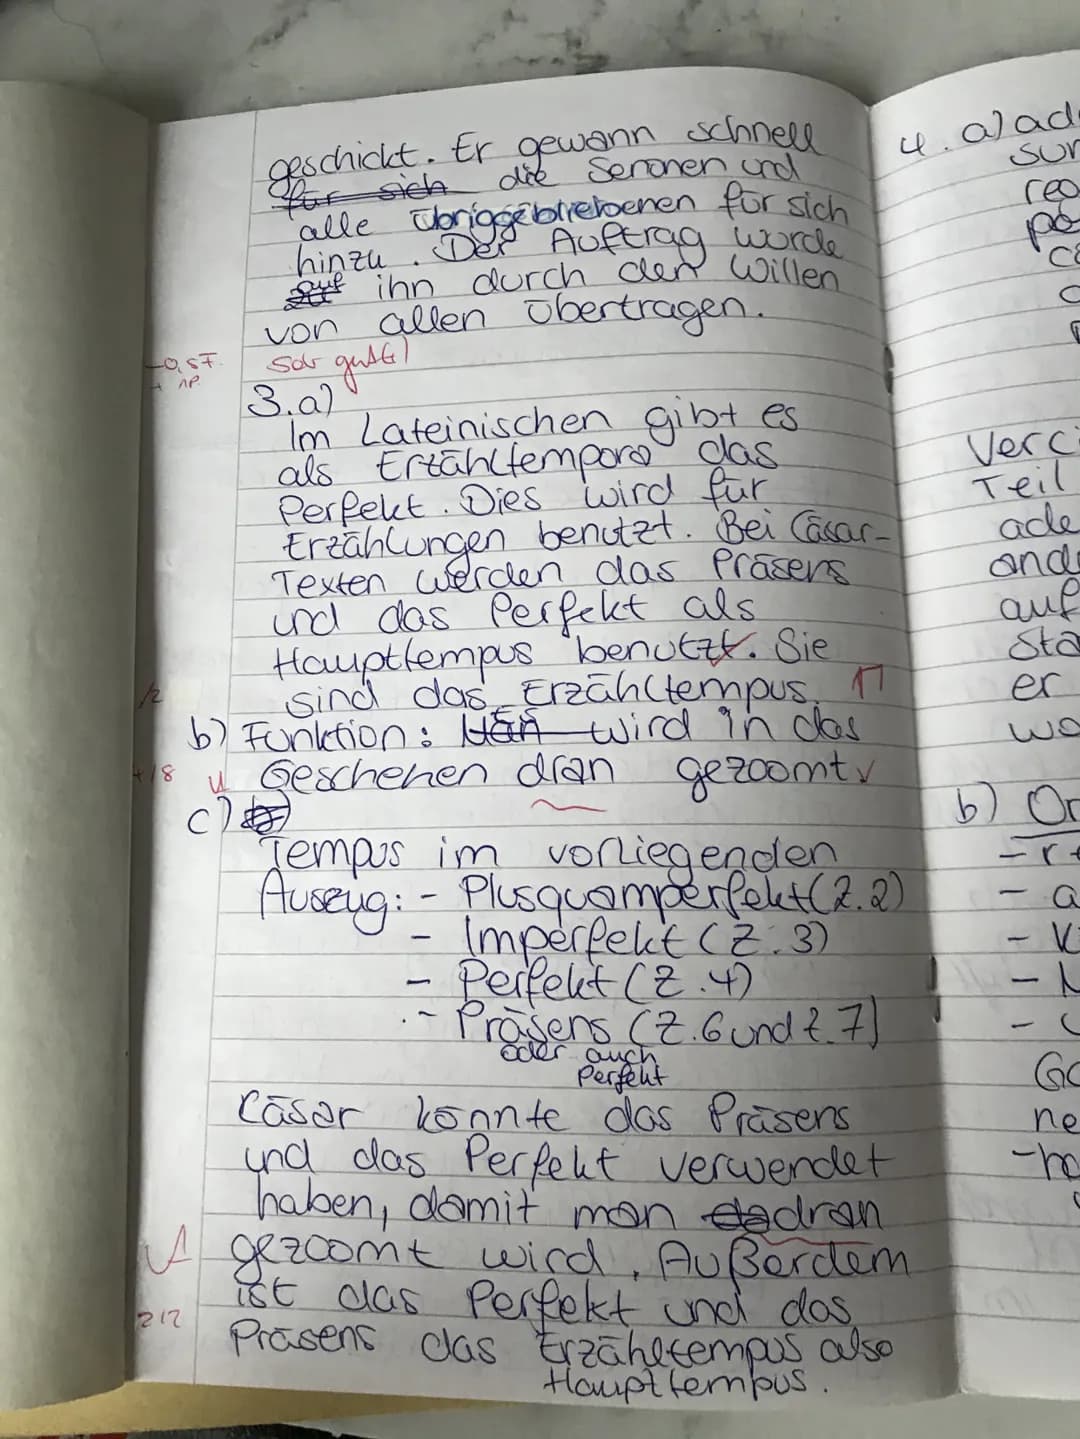 geschickt. Er gewann schnell
für sich die Senonen und
alle übriggebliebenen für sich
hinzu. Der Auftrag wurde
auf ihn durch den Willen
von allen übertragen.
-0,5F.
3.a)
Im Lateinischen gibt es
als Erzähltempora das
Perfekt. Dies wird für
Erzählungen benutzt. Bei Cäsar-
Texten werden das Präsens
und das Perfekt als
Haupttempus benutzt. Sie
sind das Erzähltempus.
b) Funktion: Man wird in das
Geschehen dran gezoomt
c) b)
Tempus im vorliegenden
Auszug: - Plusquamperfekt (Z.2)
- Imperfekt (Z.3)
- Perfekt (Z.4)
- Präsens (Z.6 und Z.7)
oder auch
Perfekt
Cäsar könnte das Präsens
und das Perfekt verwendet
haben, damit man dran
gezoomt wird. Außerdem
ist das Perfekt und das
Präsens das Erzähltempus also
Haupttempus.
4. a) ad
sur
Verc
Teil
ade
and
auf
sta
er
wo
b) Or
- a
Go
ne
-ha